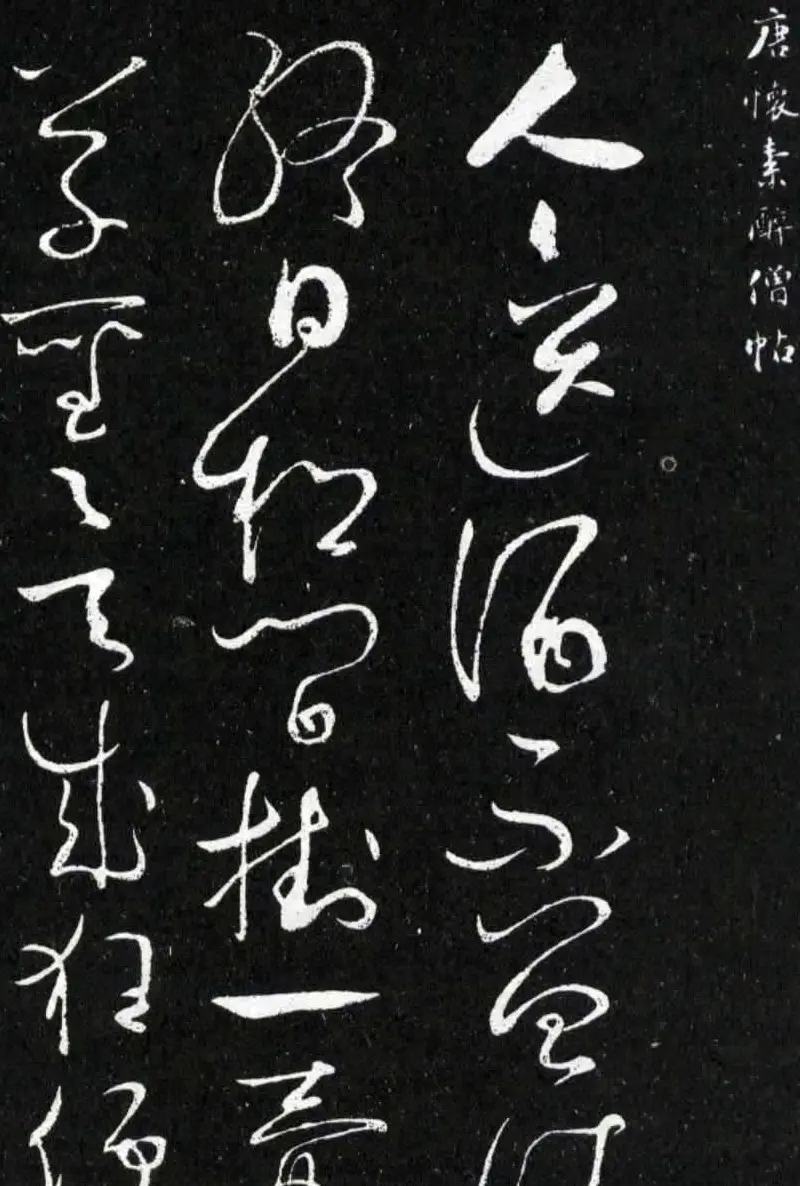 唐懷素醉僧帖
人人送酒不曾
終日松間掛一壺
草聖欲成狂便